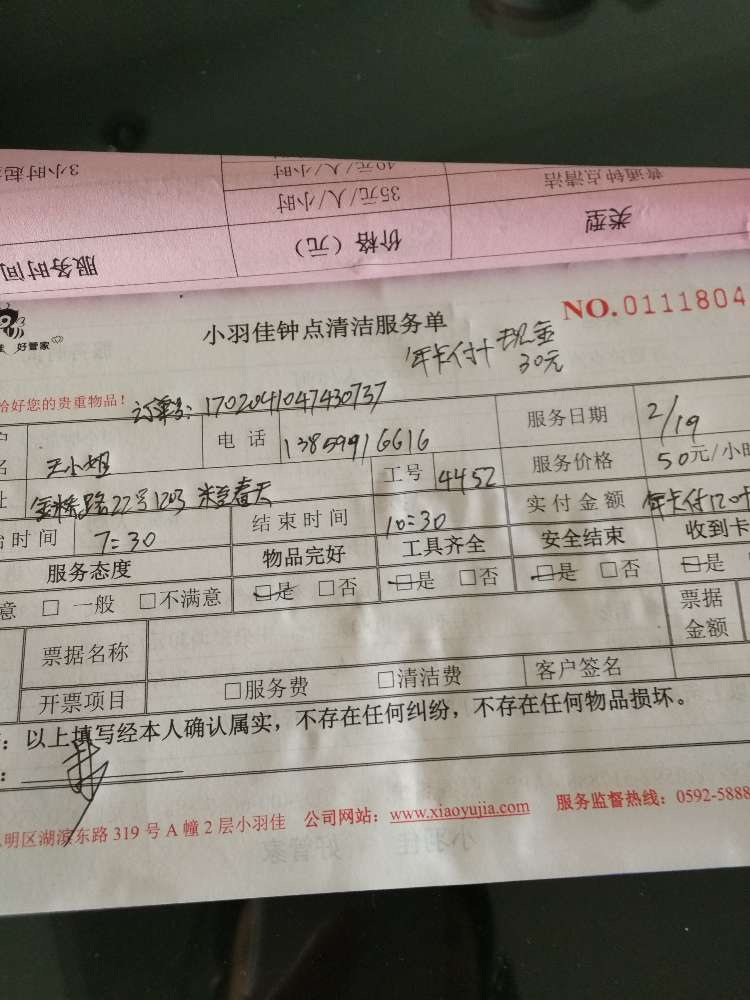 3小时起
40元/人/小时
普通钟点清洁
35元/人/小时
服务时间
价格（元）
类型
NO.0111804
小羽佳钟点清洁服务单
好管家
年卡付+现金
30元
您的贵重物品！
订单号：1702041047430737
名
王小姐
电话
13859916616
服务日期
2/19
工号
4452
服务价格
50元/小时
址
22号
春天
时间
7:30
结束时间
10:30
实付金额
年卡付120
服务态度
物品完好
工具齐全
安全结束
收到卡
意 □ 一般 □不满意
□是 □否
□是 □否
□是 □否
□是
票据名称
票据
金额
开票项目
□服务费 □清洁费
客户签名
：以上填写经本人确认属实，不存在任何纠纷，不存在任何物品损坏。
明区湖滨东路 319 号 A 幢 2 层小羽佳 公司网站：www.xiaoyujia.com 服务监督热线：0592-5888